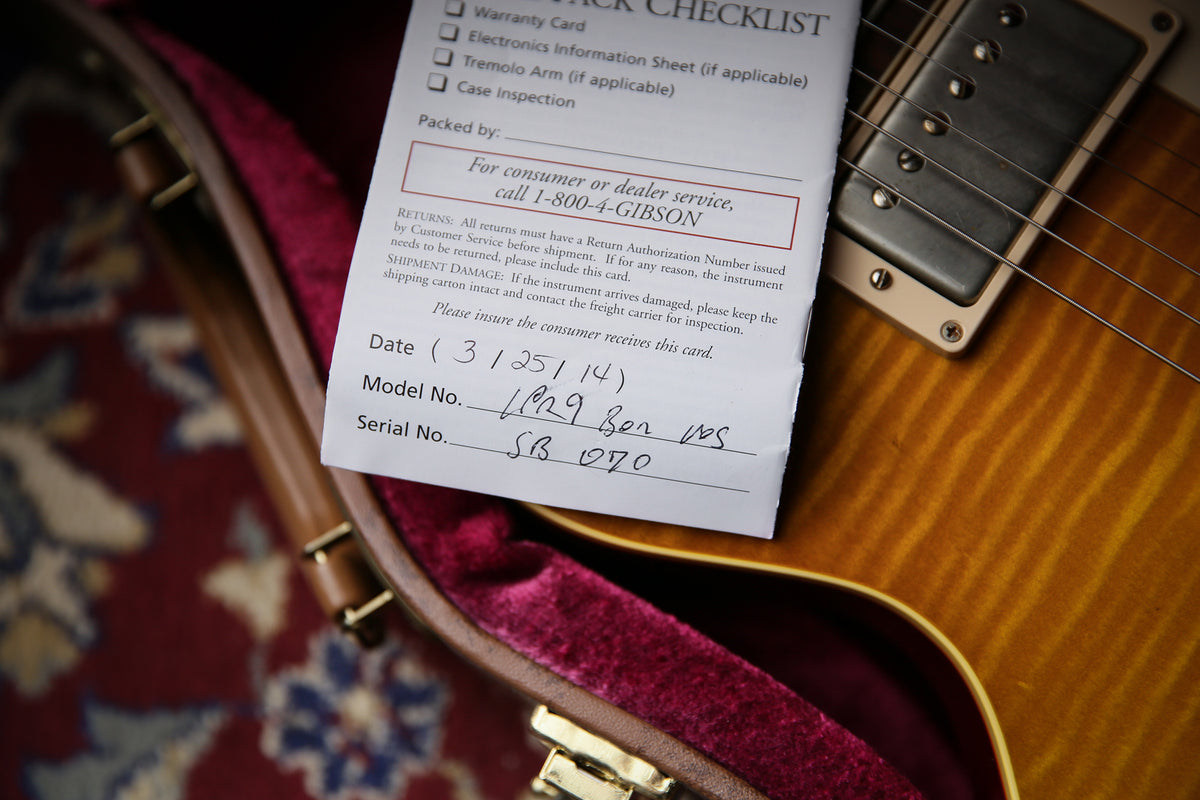 CHECKLIST
Warranty Card
Electronics Information Sheet (if applicable)
Tremolo Arm (if applicable)
Case Inspection
Packed by:
For consumer or dealer service,
call 1-800-4-GIBSON
RETURNS: All returns must have a Return Authorization Number issued
by Customer Service before shipment. If for any reason, the instrument
needs to be returned, please include this card.
SHIPMENT DAMAGE: If the instrument arrives damaged, please keep the
shipping carton intact and contact the freight carrier for inspection.
Please insure the consumer receives this card.
Date (3/25/14)
Model No. LPR9 Bon VOS
Serial No. SB 070